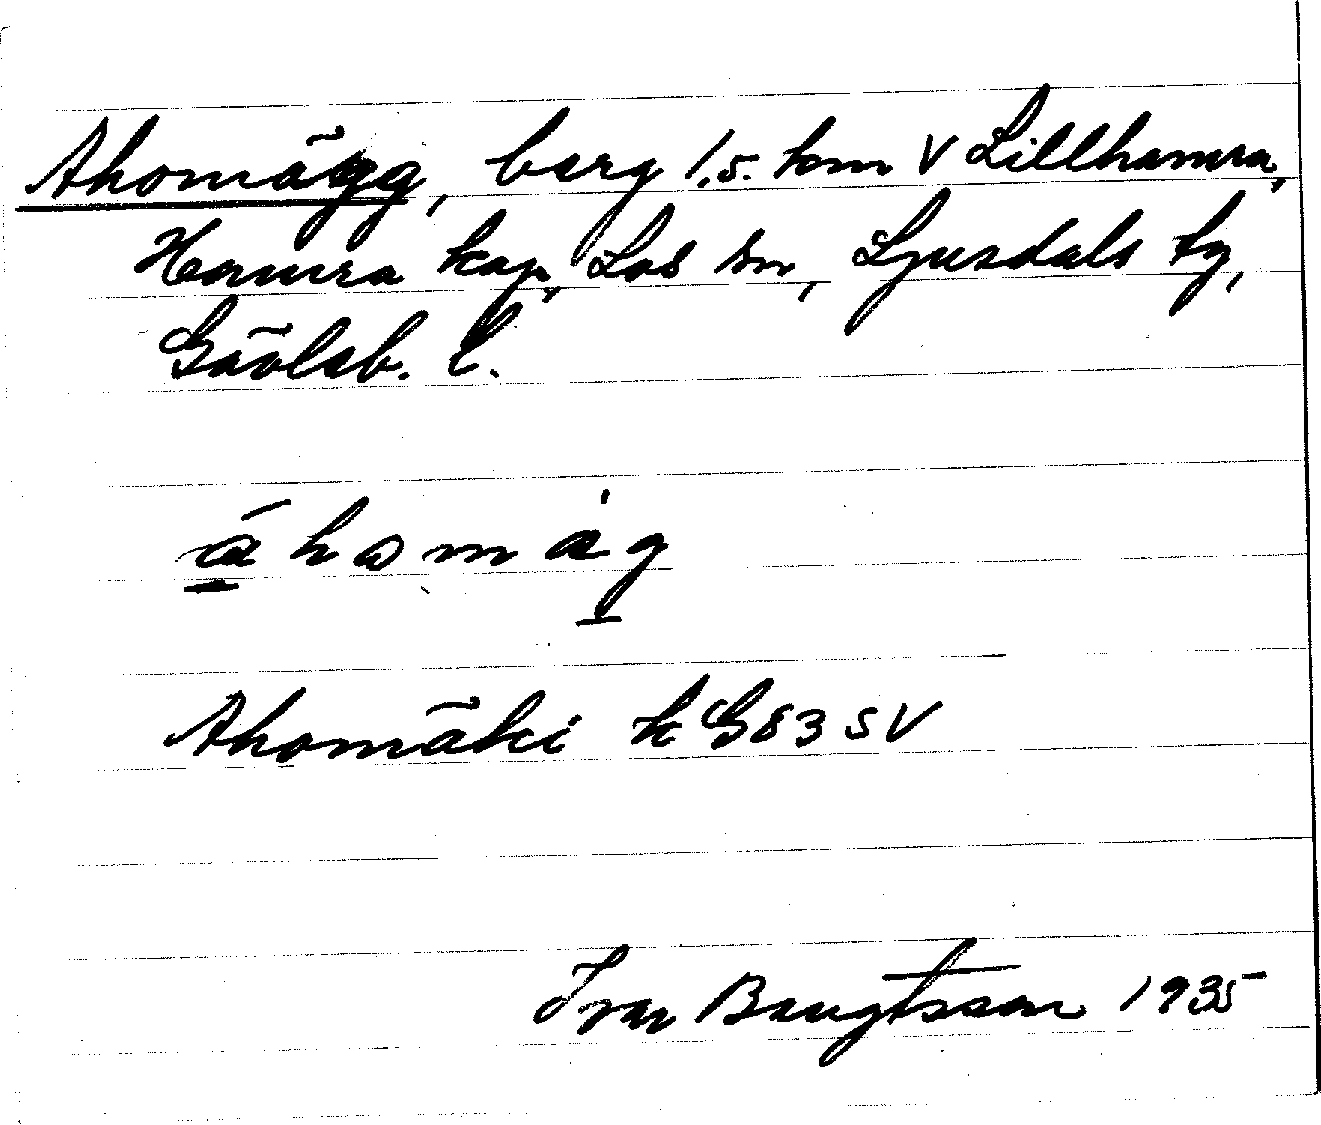 Ahomägg, berg 1.5. km V Lillhamra,
Hamra kap, Los sn, Ljusdals tg,
Gävleb. l.
áhomág
Ahomäki k G83 SV
Ivar Bengtsson 1935